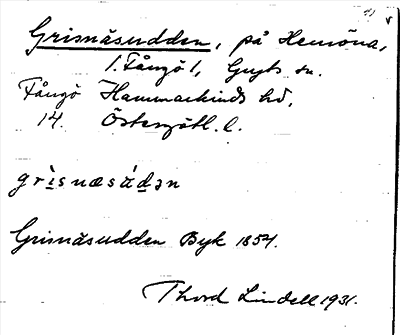 Grisnäsudden, på Hemöna,
1. Fångö 1, Gryts sn.
Fångö Hammarkinds hd,
14. Östergötl. l.
grìsnæsádən
Grisnäsudden Byk 1854.
Thord Lindell 1931.